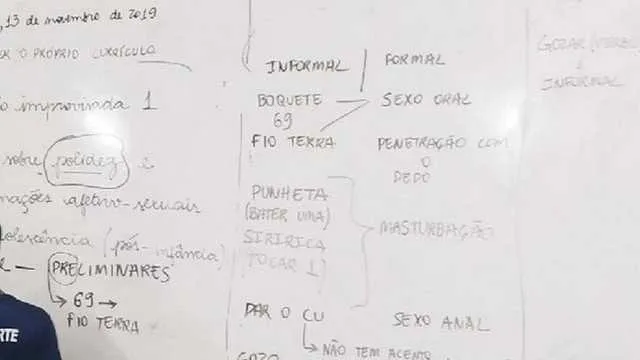 , 13 de novembro de 2019
ER O PRÓPRIO CURRÍCULO
improvisada 1
sobre polidez e
mações afetivo-sexuais
dolescência (pós-infância)
PRELIMINARES
↳ 69 →
FIO TERRA
RTE
INFORMAL
FORMAL
BOQUETE
SEXO ORAL
69
FIO TERRA
PENETRAÇÃO COM
O
DEDO
PUNHETA
(BATER UMA)
MASTURBAÇÃO
SIRIRICA
TOCAR 1)
DAR O CU
SEXO ANAL
↳ NÃO TEM ACENTO
GOZO
GOZAR
É
INFORMAL